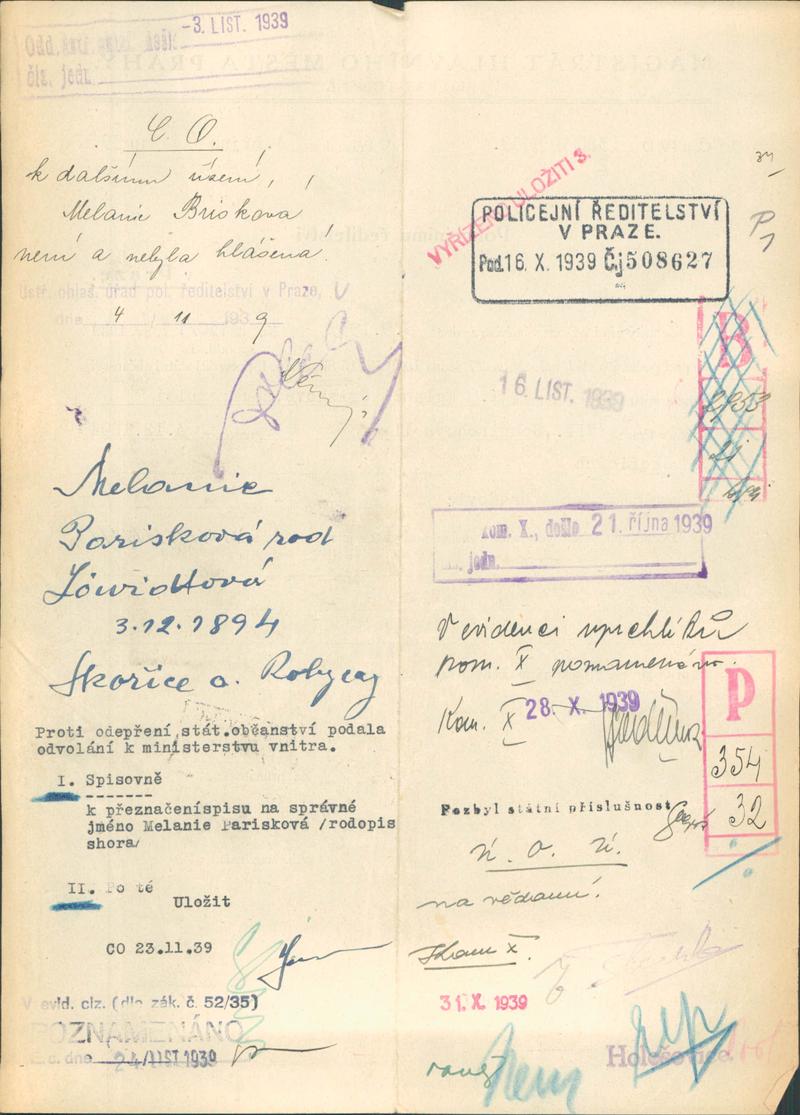 -3. LIST. 1939
čís. jedn.
C. O.
k dalšímu řízení,
Melanie Brisková
není a nebyla hlášena!
Ústř. ohlaš. úřad pol. ředitelství v Praze,
dne 4 / 11 1939
Melanie
Parisková rod
3.12.1894
Skořice o. Rokycay
Proti odepření stát.občanství podala
odvolání k ministerstvu vnitra.
I. Spisovně
k přeznačeníspisu na správné
jméno Melanie Parisková /rodopis
shora/
II. Po té
Uložit
CO 23.11.39
V evid. ciz. (dle zák. č. 52/35)
POZNAMENÁNO
dne 24/LIST 1939
VYŘÍZENO ULOŽITI 3.
POLICEJNÍ ŘEDITELSTVÍ
V PRAZE.
Pod. 16. X. 1939 Čj 508627
P
1
B
16. LIST. 1939
Kom. X., došlo 21. října 1939
jedn.
V evidenci uprchlíků
kom. X poznamenáno.
Kom. X 28. X. 1939
P
354
32
Pozbyl státní příslušnost
na vědomí.
Kom X.
31. X. 1939
Holešovice